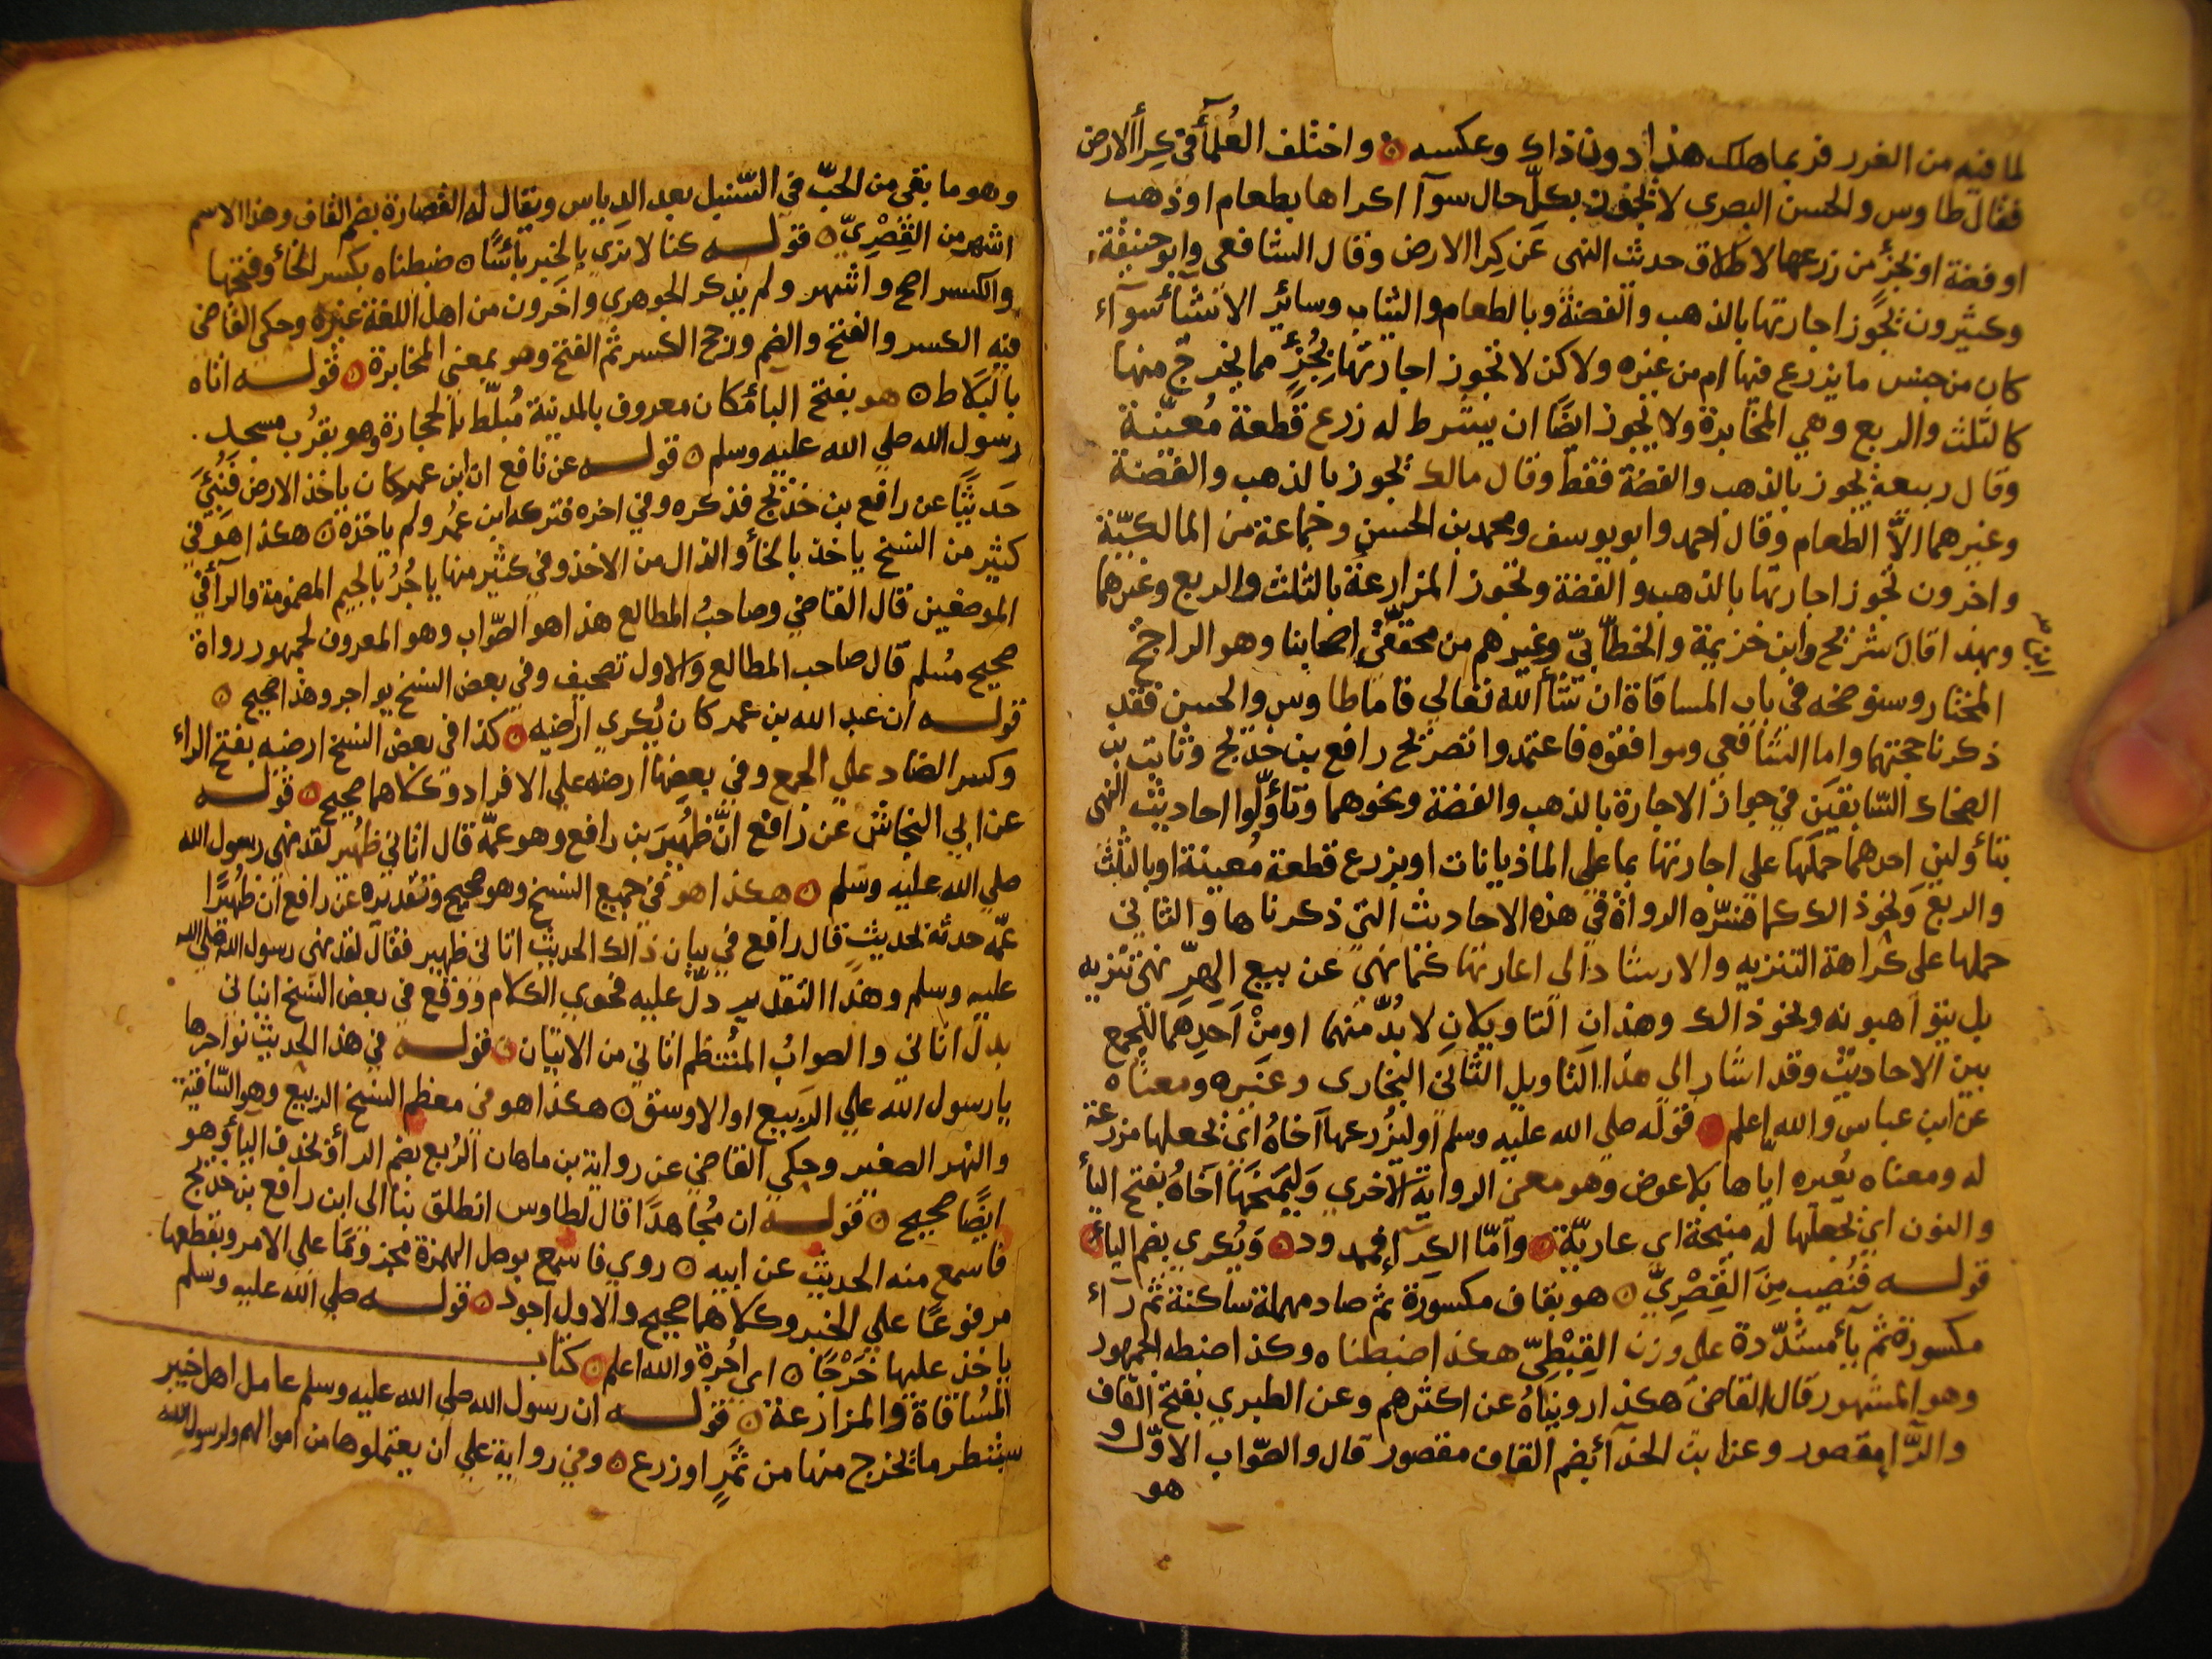 لما فيه من الغرر فربما هلك هذا دون ذاك وعكسه ۞ واختلف العلمآء في كرآ الارض
فقال طاوس والحسن البصري لا تجوز بكل حال سوآ اكراها بطعام او ذهب
او فضة او بجزء من زرعها لاطلاق حديث النهى عن كرا الارض وقال الشافعي وابو حنيفة
وكثيرون تجوز اجارتها بالذهب والفضة وبالطعام والثياب وسائر الاشيآء سوآء
كان من جنس ما يزرع فيها ام من غيره ولاكن لا تجوز اجارتها بجزء مما يخرج منها
كالثلث والربع وهي المخابرة ولا يجوز ايضا ان يشترط له زرع قطعة معينة
وقال ربيعة يجوز بالذهب والفضة فقط وقال مالك يجوز بالذهب والفضة
وغيرهما الا الطعام وقال احمد وابو يوسف ومحمد بن الحسن وجماعة من المالكية
واخرون تجوز اجارتها بالذهب والفضة وتجوز المزارعة بالثلث والربع وغيرهما
وبهذا قال شريح وابن خزيمة والخطابي وغيرهم من محققي اصحابنا وهو الراجح
المختار وسنوضحه في باب المساقاة ان شآء الله تعالى فاما طاوس والحسن فقد
ذكرنا حجتهما واما الشافعي وموافقوه فاعتمدوا تصريح رافع بن خديج وثابت بن
الضحاك السابقين في جواز الاجارة بالذهب والفضة ونحوهما وتأولوا احاديث النهى
بتأولين احدهما حملها على اجارتها بما على الماذيانات او بزرع قطعة معينة او بالثلث
والربع ونحو ذالك كما فسره الرواة في هذه الاحاديث التي ذكرناها والثاني
حملها على كراهة التنزيه والارشاد الى اعارتها كما نهى عن بيع الهر نهى تنزيه
بل يتواهبونه ونحو ذالك وهذان التاويلان لا بد منهما او من احدهما للجمع
بين الاحاديث وقد اشار الى هذا التاويل الثاني البخارى وغيره ومعناه
عن ابن عباس والله اعلم ۞ قوله صلى الله عليه وسلم او ليزرعها اخاه اي يجعلها مزرعة
له ومعناه يعيره اياها بلا عوض وهو معنى الرواية الاخرى وليمنحها اخاه بفتح اليآء
والنون اي يجعلها له منيحة اي عارية ۞ وامّا الكرآء فممدود ۞ ويُكري بضم اليآء ۞
قوله فنصيب من القِصْرِيّ ۞ هو بقاف مكسورة ثم صاد مهملة ساكنة ثم رآء
مكسورة ثم يآء مشدّدة على وزن القِبْطِيّ هكذا ضبطناه وكذا ضبطه الجمهور
وهو المشهور قال القاضى هكذا رويناه عن اكثرهم وعن الطبري بفتح القاف
والرّا مقصور وعن ابن الخزآء بضم القاف مقصور قال والصّواب الاوّل و
هو
وهو ما بقى من الحبّ في السّنبل بعد الدياس ويقال له القصارة بضم القاف وهذا الاسم
اشهر من القِصْرِيّ ۞ قوله كنا لا نرى بالخبر بأسًا ۞ ضبطناه بكسر الخآء وفتحها
والكسر اصح واشهر ولم يذكر الجوهري واخرون من اهل اللغة غيره وحكى القاضى
فيه الكسر والفتح والضم ورجح الكسر ثم الفتح وهو بمعنى المخابرة ۞ قوله اتاه
بالبَلَاط ۞ هو بفتح البآء مكان معروف بالمدينة مُبلّط بالحجارة وهو بقرب مسجد
رسول الله صلى الله عليه وسلم ۞ قوله عن نافع ان ابن عمر كان ياخذ الارض فنُبّئ
حديثًا عن رافع بن خديج فذكره وفي اخره فتركه ابن عمر ولم ياخذه ۞ هكذا هو في
كثير من النسخ ياخذ بالخآء والذال من الاخذ وفي كثير منها ياجُرُ بالجيم المضمومة والرآء في
الموضعين قال القاضي وصاحب المطالع هذا هو الصّواب وهو المعروف لجمهور رواة
صحيح مُسلم قال صاحب المطالع والاول تصحيف وفي بعض النسخ يواجر وهذا صحيح ۞
قوله ان عبد الله بن عمر كان يُكري ارضيه ۞ كذا في بعض النسخ ارضيه بفتح الراء
وكسر الضاد على الجمع وفي بعضها ارضه على الافراد وكلاهما صحيح ۞ قوله
عن ابي النجاشى عن رافع انّ ظُهَيرَ بن رافع وهو عمّه قال اتاني ظهير لقد نهى رسول الله
صلى الله عليه وسلم ۞ هكذا هو في جميع النسخ وهو صحيح وتقديره عن رافع ان ظهيرًا
عمّه حدثه بحديث قال رافع في بيان ذالك الحديث اتاني ظهير فقال لقد نهى رسول الله صلى الله
عليه وسلم وهذا التقدير دلّ عليه فحوى الكلام ووقع في بعض النسخ انباني
بدل اتاني والصواب المُنتظم اتاني من الاتيان ۞ قوله في هذا الحديث نواجرها
يا رسول الله على الربيع او الاوسق ۞ هكذا هو في معظم النسخ الربيع وهو السّاقية
والنهر الصغير وحكى القاضي عن رواية بن ماهان الرُبع بضم الرآء وبحذف اليآء وهو
ايضًا صحيح ۞ قوله ان مُجاهدًا قال لطاوس انطلق بنا الى ابن رافع بن خديج
فاسمع منه الحديث عن ابيه ۞ روي فاسمع بوصل الهمزة مجزومًا على الامر وبقطعها
مرفوعًا على الخبر وكلاهما صحيح والاول اجود ۞ قوله صلى الله عليه وسلم
ياخذ عليها خَرْجًا ۞ اي اجرة والله اعلم ۞ كتاب
المُسَاقاة والمزارعة ۞ قوله ان رسول الله صلى الله عليه وسلم عامل اهل خيبر
بشطر ما يخرج منها من ثمر او زرع ۞ وفي رواية على ان يعتملوها من اموالهم ولرسول الله